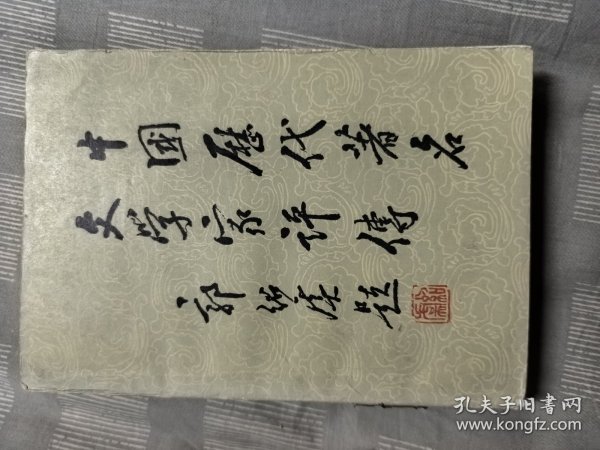 中國歷代著名
文学家评傳
郭紹虞题
孔夫子旧書网
www.kongfz.com